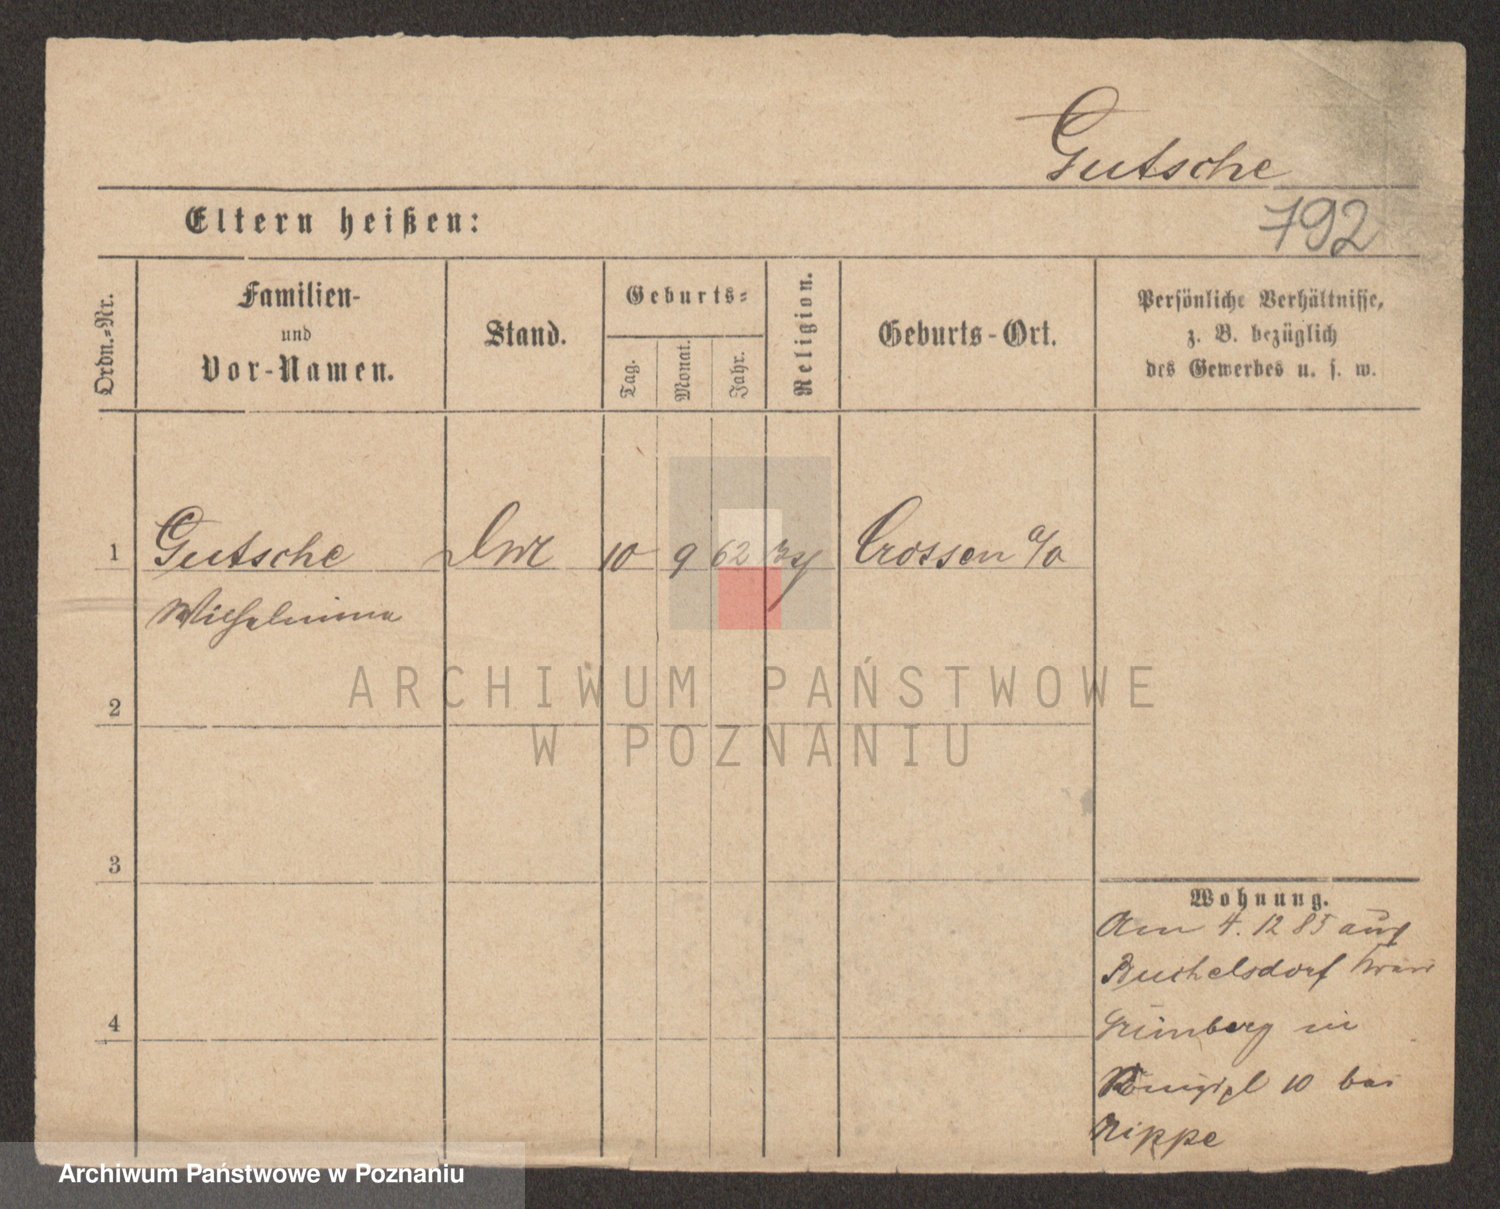 Gutsche
Eltern heißen:
792
Ordn.-Nr.
Familien-
und
Vor-Namen.
Stand.
Geburts-
Tag.
Monat.
Jahr.
Religion.
Geburts-Ort.
Persönliche Verhältnisse,
z. B. bezüglich
des Gewerbes u. s. w.
1
Gutsche
10
9
62
Crossen a/o
Wilhelmine
ARCHIWUM PAŃSTWOWE
W POZNANIU
2
3
4
Wohnung.
Am 4. 12 85 aus
Buchelsdorf Kreis
Grünberg in
10 bei
Rippe
Archiwum Państwowe w Poznaniu